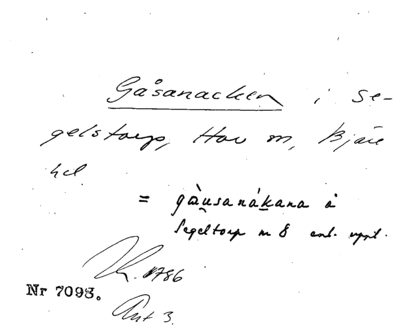 Gåsanacken i Se-
gelstorp, Hov sn, Bjäre
hd
= gàu̯sanákana å
Segeltorp nr 8 enl. uppt.
1786
Nr 7093.
Ant 3.